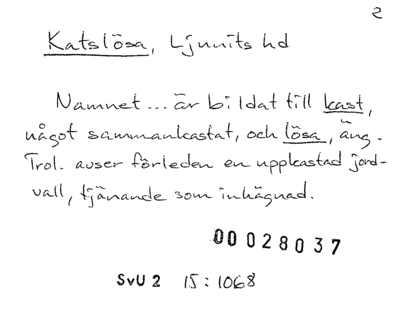 2
Katslösa, Ljunits hd
Namnet... är bildat till kast,
något sammankastat, och lösa, äng.
Trol. avser förleden en uppkastad jord-
vall, tjänande som inhägnad.
00028037
SvU 2 15:1068